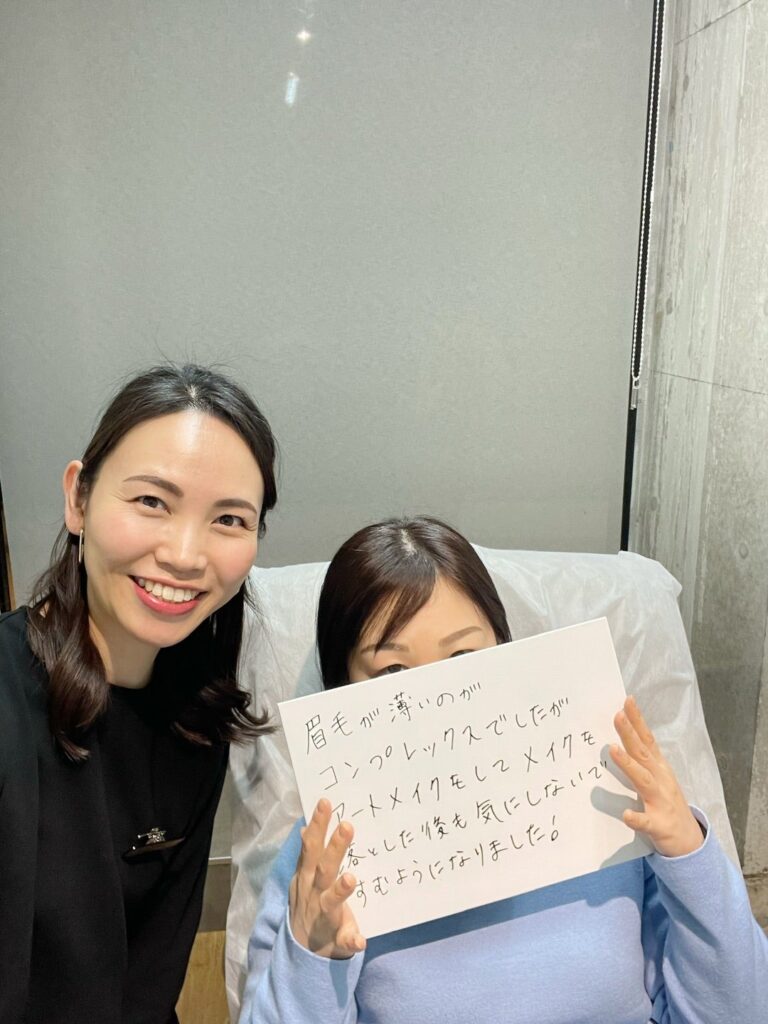 眉毛が薄いのが
コンプレックスでしたが
アートメイクをしてメイクを
落とした後も気にしないで、
すむようになりました!